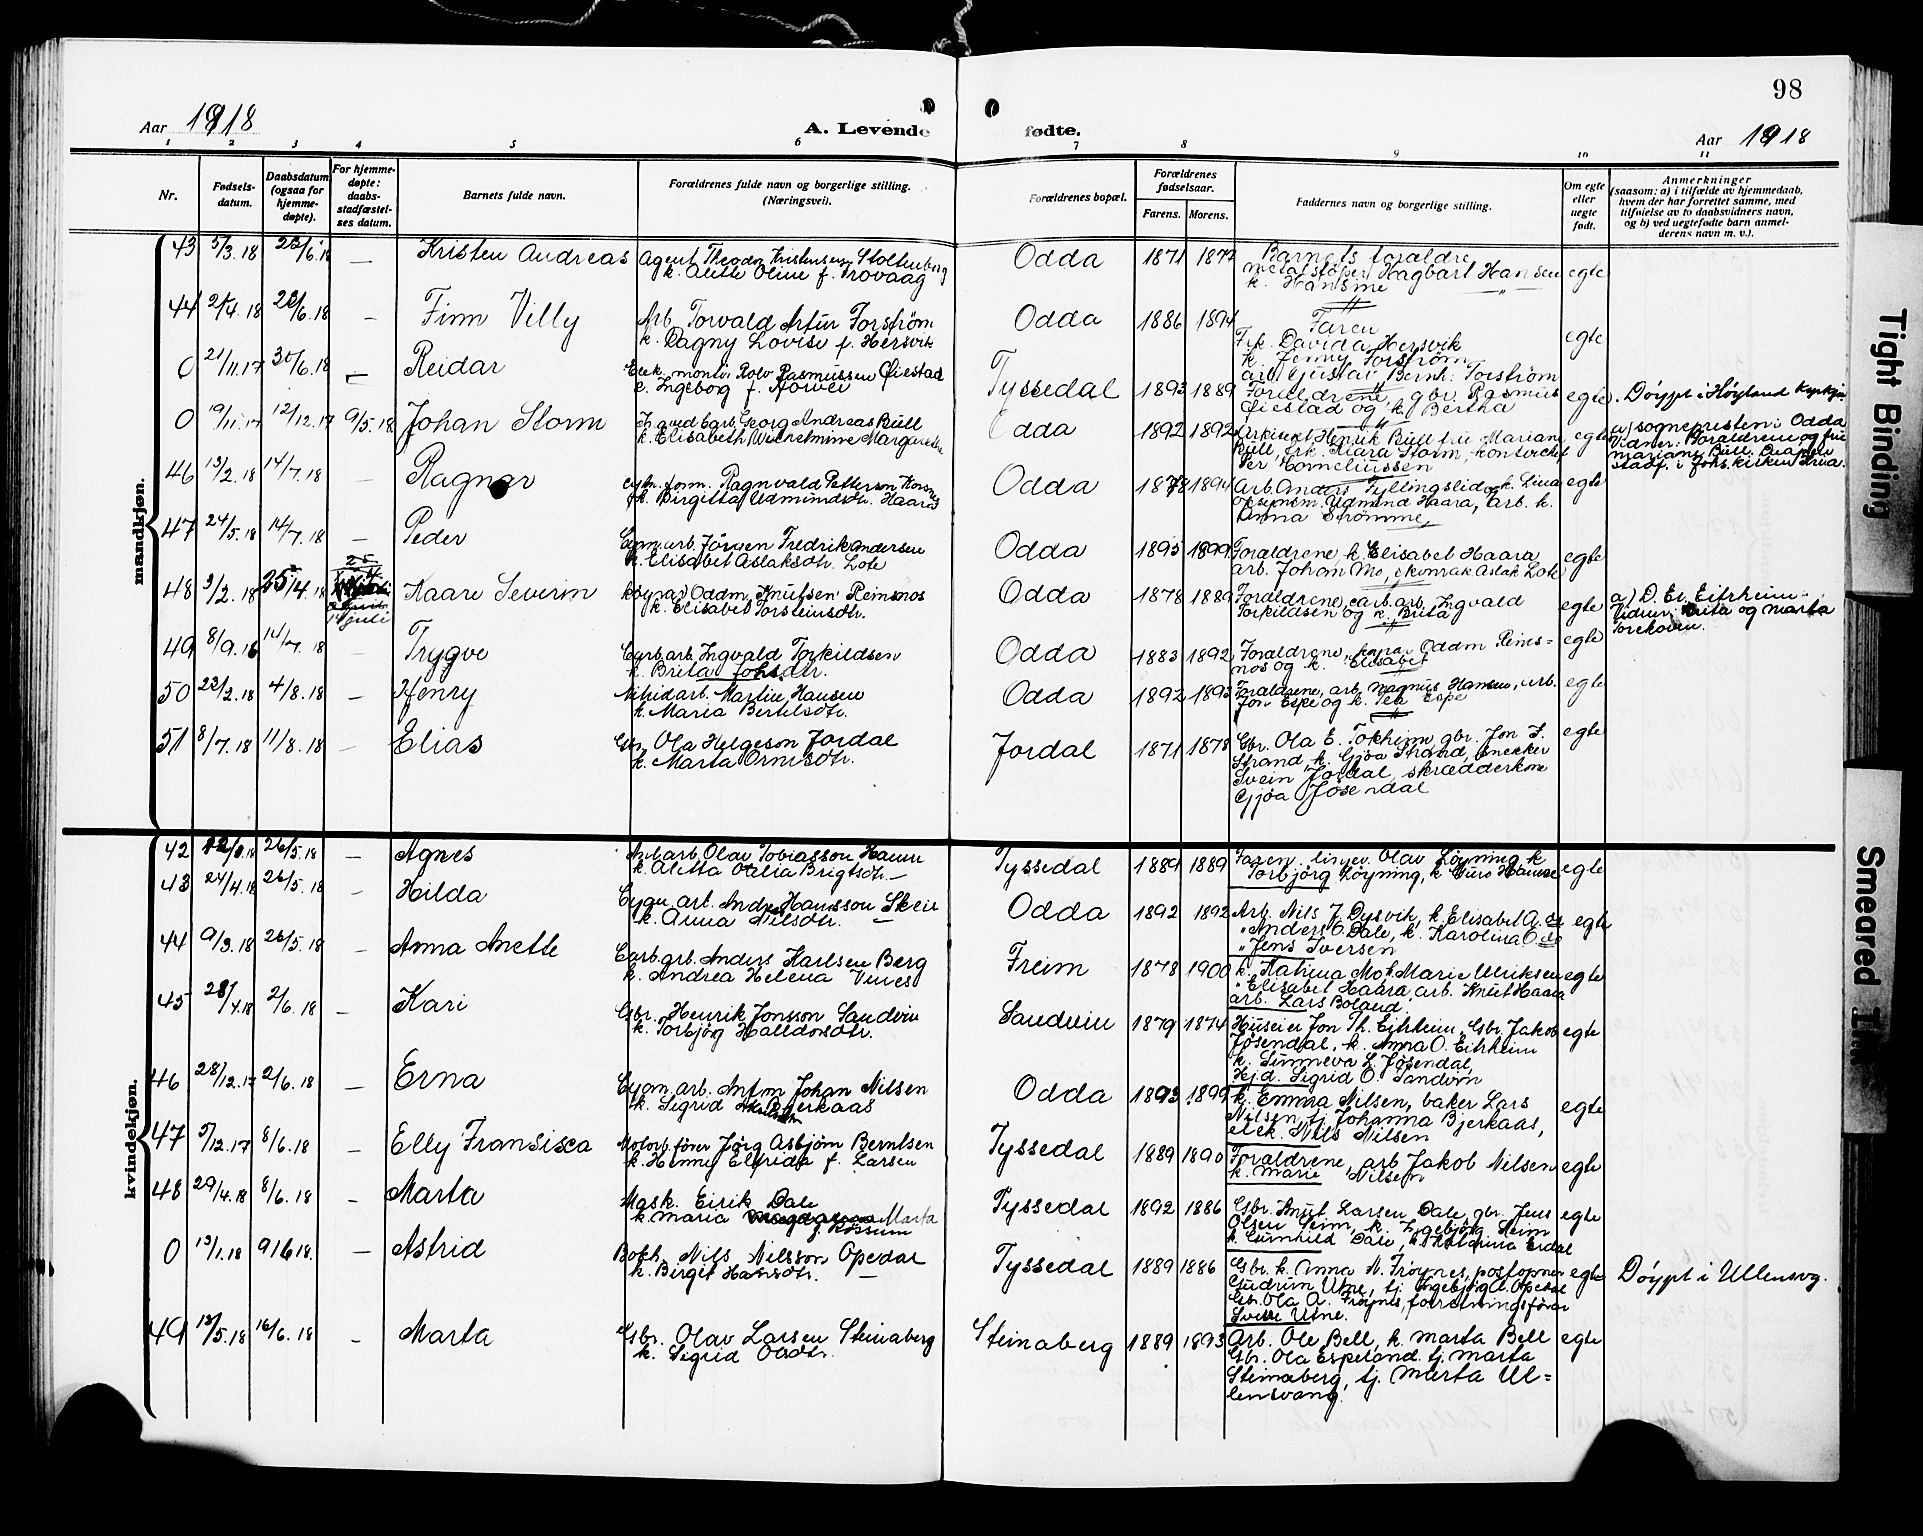 98
Aar 1918 A. Levende fødte. Aar 1918
1 2 3 4 5 6 7 8 9 10 11
Nr.
Fødsels-
datum.
Daabsdatum
(ogsaa for
hjemme-
døpte).
For hjemme-
døpte:
daabs-
stadfæstel-
ses datum.
Barnets fulde navn.
Forældrenes fulde navn og borgerlige stilling.
(Næringsvei).
Forældrenes bopæl.
Forældrenes
fødselsaar.
Farens. Morens.
Faddernes navn og borgerlige stilling.
Om egte
eller
uegte
født.
Anmerkninger
(saasom: a) i tilfælde av hjemmedaab,
hvem der har forrettet samme, med
tilføielse av to daabsvidners navn,
og b) ved uegtefødte barn anmel-
derens navn m. v.).
mandkjøn.
43 5/3.18 – Kristen Andreas
Agent Theodor Kristensen Stoltenberg
k. Alette Oline f. Trovaag
Odda 1871 1877
Barnets forældre
metalstøper Hagbart Hansen
k. Hansine
egte
44 2/4.18 – Finn Villy
Arb. Torvald Artur Forstrøm
k. Ragny Lovise f. Hersvik
Odda 1886 1894
Faren
Frk. Davida Hersvik
k. Jenny Forstrøm
arb. Gustav Bernh. Forstrøm
egte
0 21/11.17 30/6.18 – Reidar
Elek. montør Rolv Rasmussen Øiestad
k. Ingebog f.
Tyssedal 1893 1889
Forældrene, gbr. Rasmus
Øiestad og k. Bertha
egte
Døypt i Høyland
0 19/11.17 12/12.17 9/5.18 Johan Storm
Georg Andreas Bull
k. Elisabeth Wilhelmine Margarethe
Odda 1892 1892
Arkitekt Henrik Bull frue Mariane
Bull, frk. Klara Storm, kontorchef
Per Corneliussen
egte
a) sognepresten i Odda
Vidner: Forældrene og frue
Mariane Bull.
stadf. i Johs. kirken
46 13/2.18 14/7.18 – Ragnar
Ragnvald Petterson
k. Birgitta Udmundsdtr. Haara
Odda 1878 1894
Arb. Anders Fyllingslid, k. Lina
Udmund Haara, arb. k.
Anna Strømme
egte
47 24/5.18 14/7.18 – Peder
Cyan. arb. Jörgen Fredrik Andersen
k. Elisabet Aslaksdtr. Lote
Odda 1895 1899
Forældrene, k. Elisabet Haara
arb. Johan Mo, Aslak Lote
egte
48 3/2.18 25/4.18 14 juli Kaare Severin
Oddm. Knutsen Reinsnos
k. Elisabet Torsteinsdtr.
Odda 1878 1889
Forældrene, carb. arb. Ingvald
Torkildsen og k. Brita
egte
a) D. Er. Eitrheim
Vidner: Brita og Marta
49 8/9.16 14/7.18 – Trygve
Carb. arb. Ingvald Torkildsen
k. Brita Johs.dtr.
Odda 1883 1892
Forældrene, Oddm Reins-
nos og k. Elisabet
egte
50 23/2.18 4/8.18 – Henry
arb. Martin Hansen
k. Maria Bertelsdtr.
Odda 1892 1893
Forældrene, arb. Magnus Hansen, arb.
Jon Espe og k. Espe
egte
51 8/7.18 11/8.18 – Elias
Gbr. Ola Helgeson Jordal
k. Marta Ormsdtr.
Jordal 1871 1878
Gbr. Ola E. Tokheim, gbr. Jon J.
Strand, k. Gjøa Strand, snekker
Svein Jordal, skrædderkone
Gjøa Jøsendal
egte
kvindekjøn.
42 26/5.18 – Agnes
arb. Olav Tobiasson Hamre
k. Aletta Otelia Brigtsdtr.
Tyssedal 1889 1889
Faren, Olav Löyning, k
Torbjörg Löyning, k. Guro Hamre
egte
43 24/4.18 26/5.18 – Hilda
Cyan arb. Andr. Hansson Skeie
k. Anna Nilsdtr.
Odda 1892 1892
Arb. Nils J. Dysvik, k. Elisabet A. do
" Anders O. Dale, k. Karolina O. do
" Jens Iversen
egte
44 9/3.18 26/5.18 – Anna Anette
Carb. arb. Anders Karlsen Berg
k. Andrea Helena
Freim 1878 1900
k. Katrina Mo, k. Marie Ulriksen
" Elisabet Haara, arb. Knut Haara
arb. Lars Boland
egte
45 28/4.18 2/6.18 – Kari
Gbr. Henrik Jonsson Sandvin
k. Torbjög Halldorsdtr.
Sandvin 1879 1874
Huseier Jon Th. Eitrheim, Gbr. Jakob
Jøsendal, k. Anna O. Eitrheim
k. Sunneva L. Jøsendal,
Hjd. Sigrid O. Sandvin
egte
46 28/12.17 2/6.18 – Erna
Cyan. arb. Anton Johan Nilsen
k. Sigrid Bjerkaas
Odda 1893 1899
k. Emma Nilsen, baker Lars
Nilsen, tj. Johanna Bjerkaas,
elek. Nils Nilsen
egte
47 5/12.17 8/6.18 – Elly Fransisca
Motorb. fører Jörg Asbjørn Berntsen
k. Henny Elfrida f. Larsen
Tyssedal 1889 1890
Forældrene, arb. Jakob Nilsen
k. Marie Nilsen
egte
48 29/4.18 8/6.18 – Marta
Mask. Eirik Dale
k. Maria Marta
Tyssedal 1892 1886
Gbr. Knut Larsen Dale, gbr. Jens
Olsen Seim, k. Ingebjörg Seim
k. Gunhild Dale, k. Katarina Erdal
egte
0 13/1.18 9/6 18. – Astrid
Bokh. Nils Nilsson Opedal
k. Birget Hansdtr.
Tyssedal 1889 1886
Gbr. k. Anna N. Frøynes, postopner
Gudrun Utne, tj. Ingebjörg A. Opedal
Gbr. Ola A. Frøynes, forretningsfører
Sverre Utne.
egte
Döypt i Ullensvg.
49 13/5.18 16/6.18 – Marta
Gbr. Olav Larsen Steinaberg
k. Sigrid Olsdtr.
Steinaberg 1889 1893
Arb. Ole Bell, k. Marta Bell
Gbr. Ola Espeland, tj. Marta
Steinaberg, tj. Marta Ul=
lensvang.
egte
Tight Binding
Smeared Ink